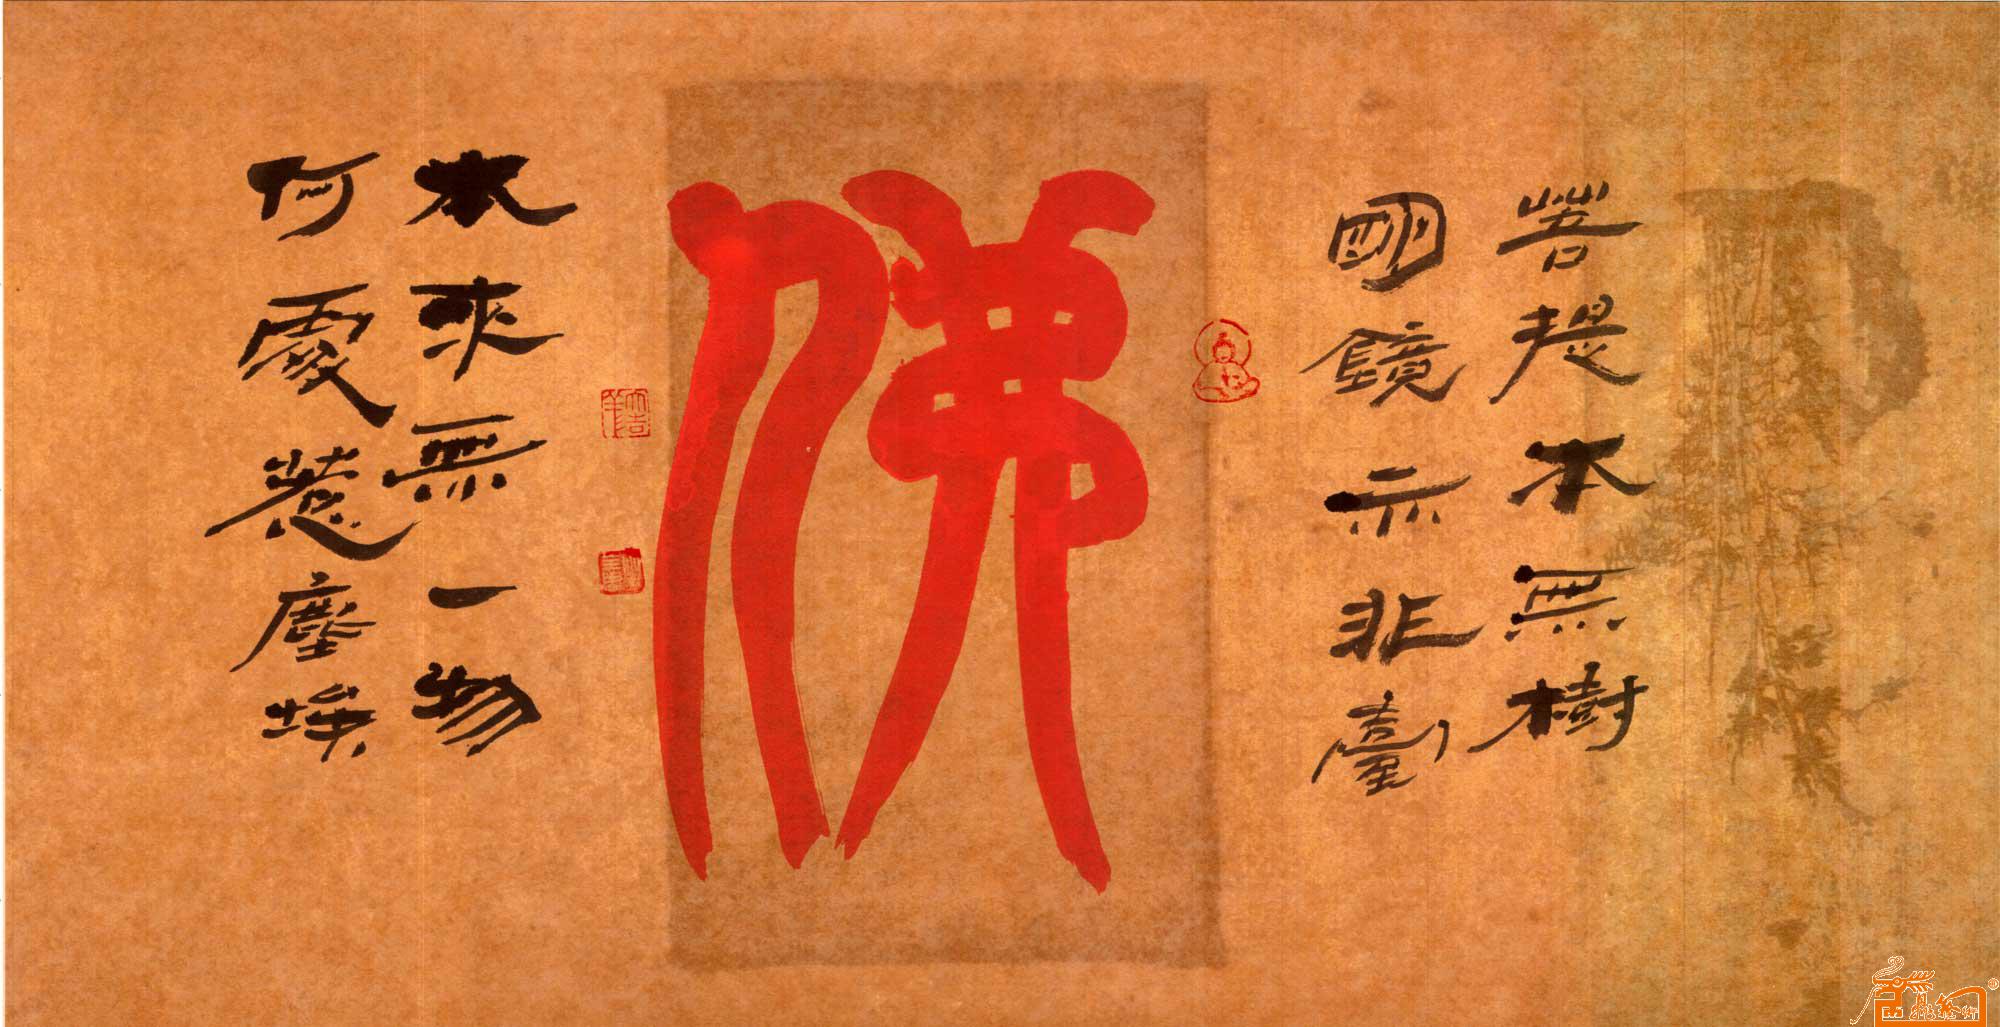 菩提本無樹
明鏡亦非臺
佛
本來無一物
何處惹塵埃